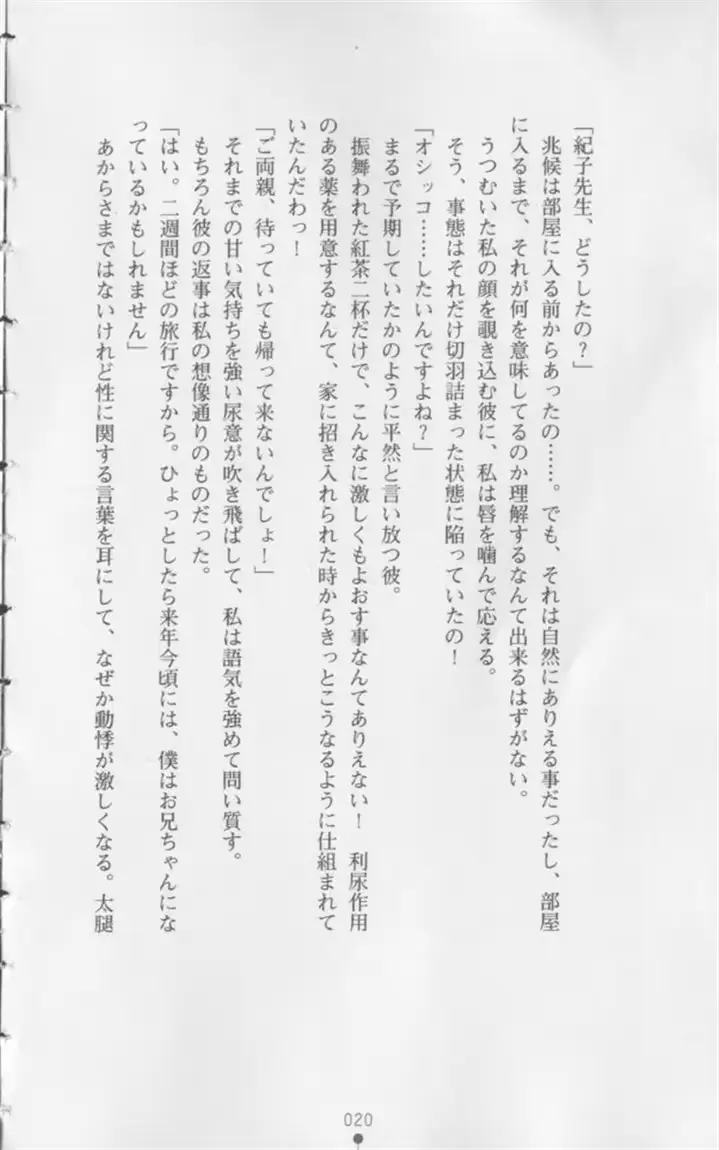 「紀子先生、どうしたの？」
　兆候は部屋に入る前からあったの……。でも、それは自然にありえる事だったし、部屋
に入るまで、それが何を意味してるのか理解するなんて出来るはずがない。
　うつむいた私の顔を覗き込む彼に、私は唇を噛んで応える。
　そう、事態はそれだけ切羽詰まった状態に陥っていたの！
「オシッコ……したいんですよね？」
　まるで予期していたかのように平然と言い放つ彼。
　振舞われた紅茶二杯だけで、こんなに激しくもよおす事なんてありえない！　利尿作用
のある薬を用意するなんて、家に招き入れられた時からきっとこうなるように仕組まれて
いたんだわっ！
「ご両親、待っていても帰って来ないんでしょ！」
　それまでの甘い気持ちを強い尿意が吹き飛ばして、私は語気を強めて問い質す。
　もちろん彼の返事は私の想像通りのものだった。
「はい。二週間ほどの旅行ですから。ひょっとしたら来年今頃には、僕はお兄ちゃんにな
っているかもしれません」
　あからさまではないけれど性に関する言葉を耳にして、なぜか動悸が激しくなる。太腿
020